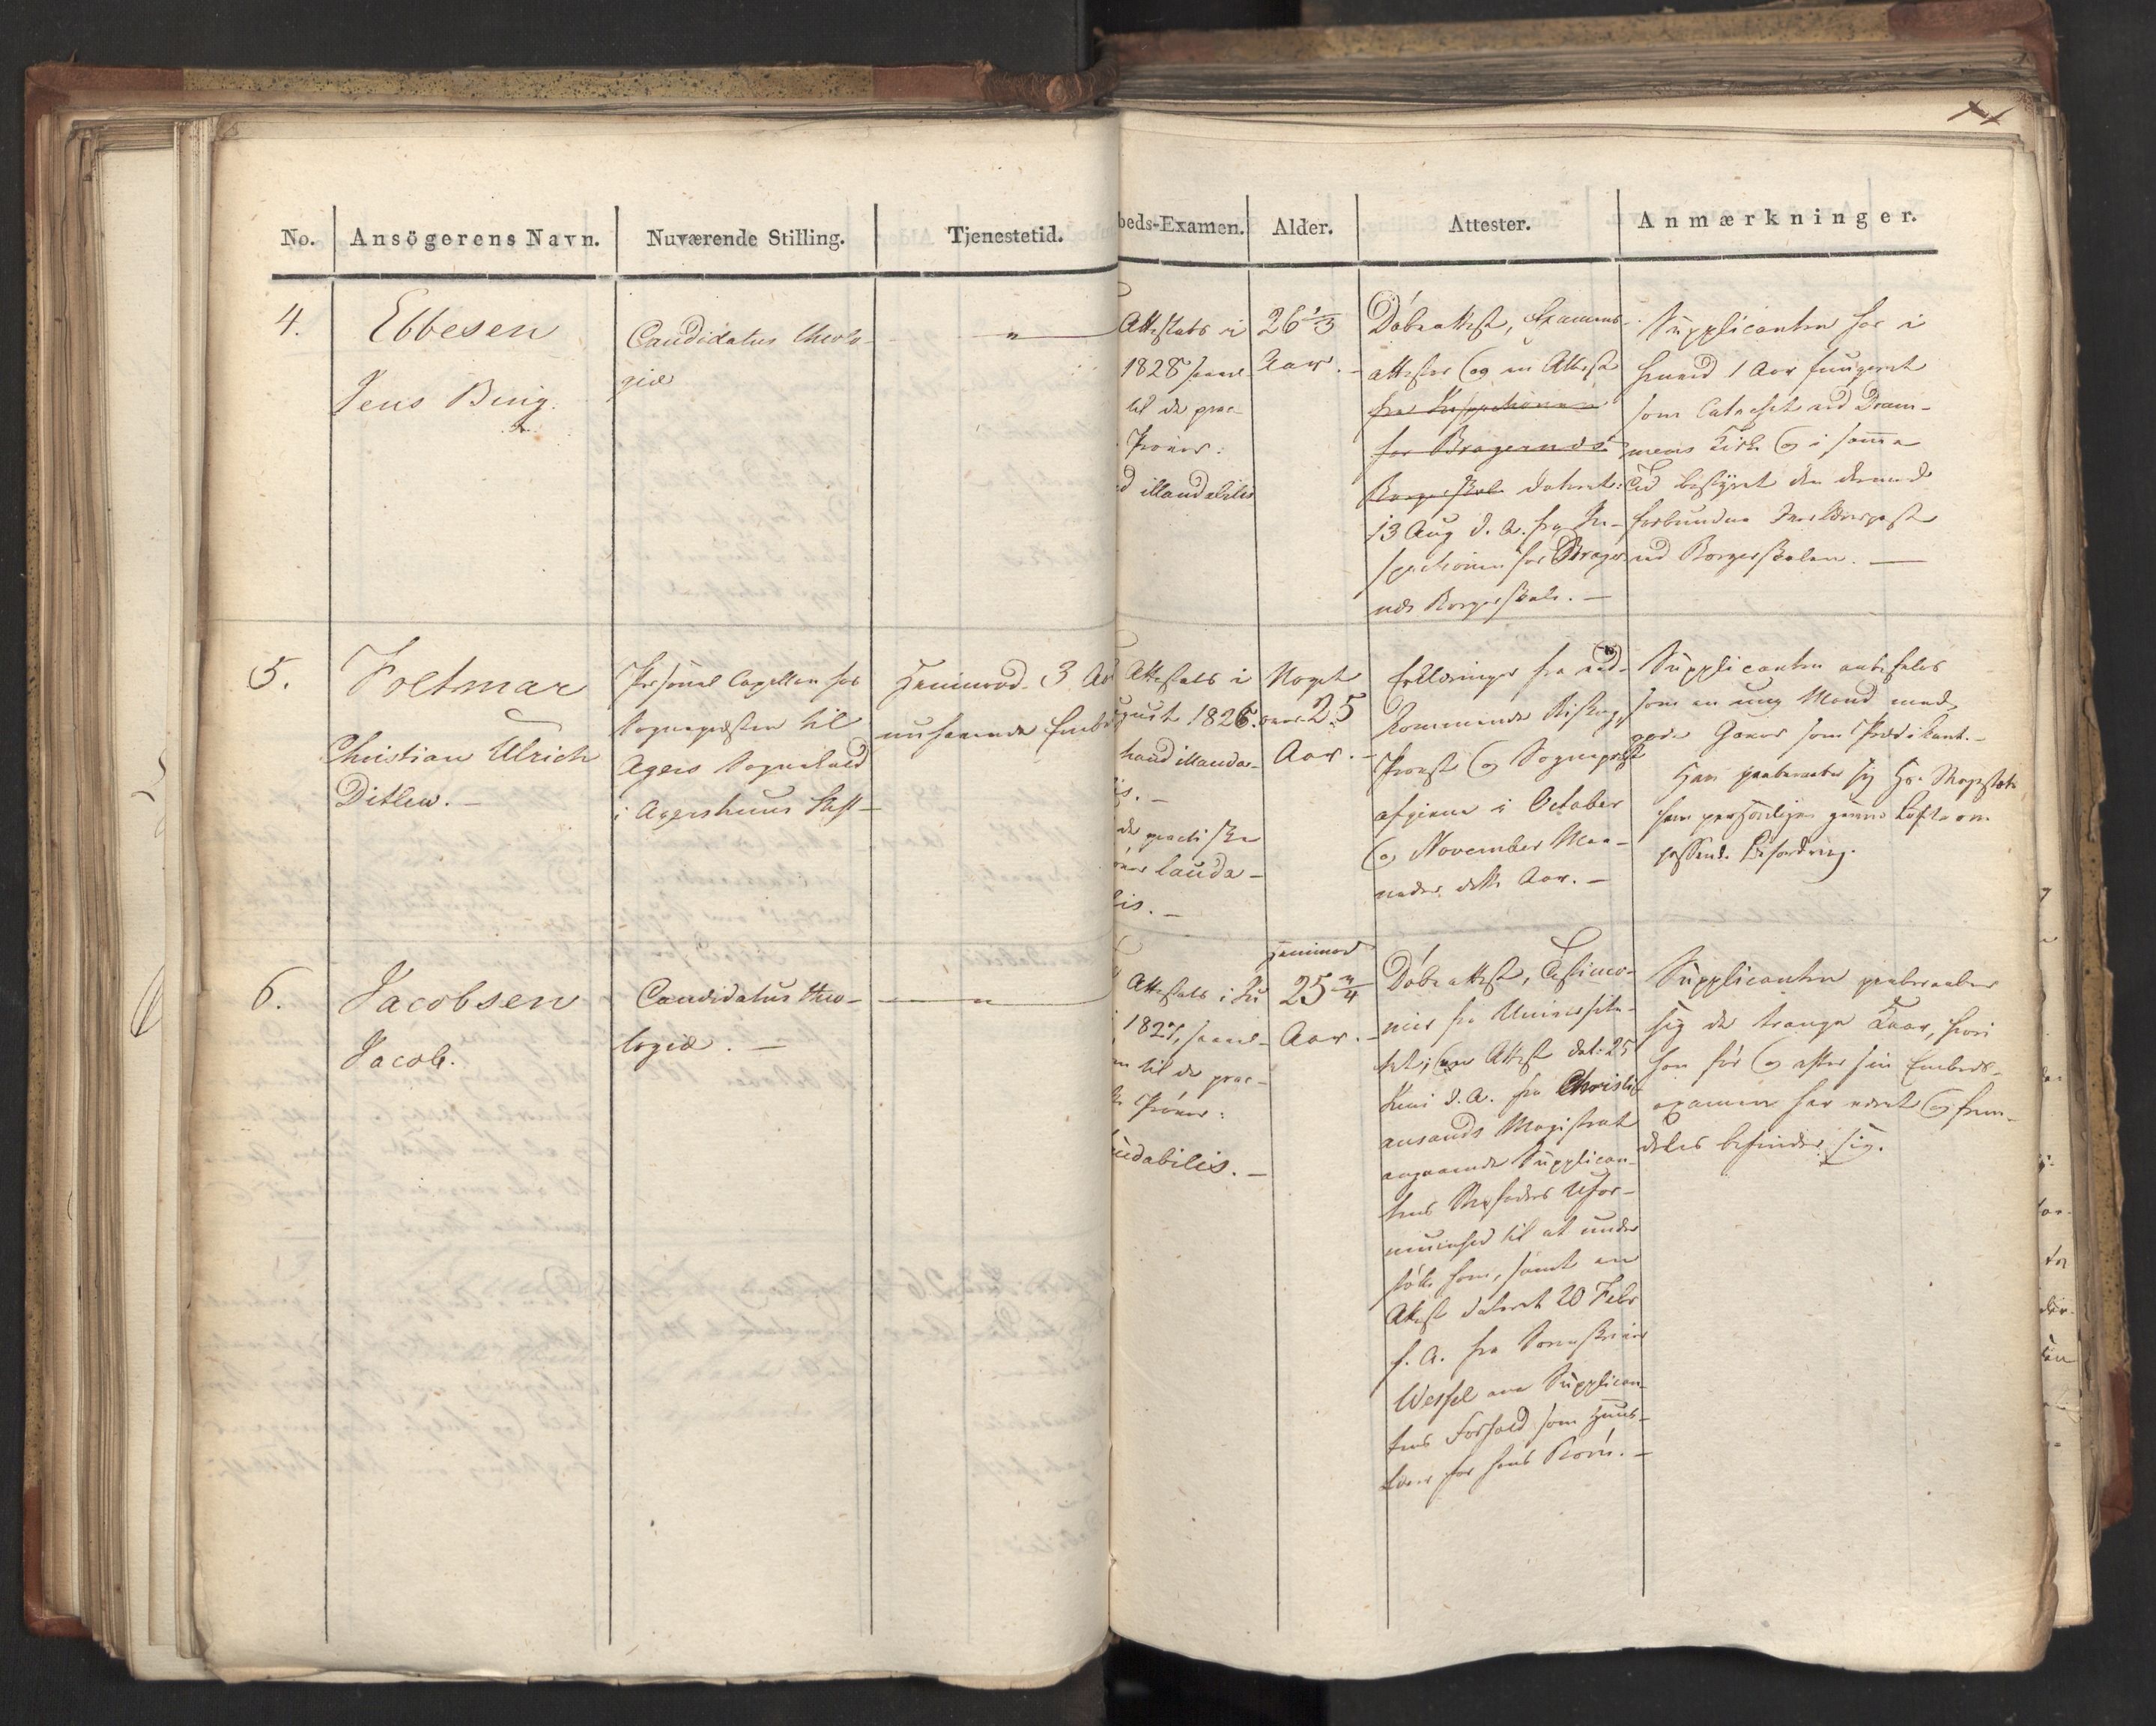 No.
Ansögerens Navn.
Nuværende Stilling.
Tjenestetid.
beds-Examen.
Alder.
Attester.
Anmærkninger.
4.
Ebbesen
Jens Bing.
Candidatus theolo-
giæ
"
Attestats i
1828 saavel
til de prac-
Pröver:
d illaudabilis
26 1/3
Aar. -
Döbeattest, Examens-
attester og en Attest
fra Inspectionen
for Bragernæs
Borgerskole dateret
13 Aug d. A. fra In-
spectionen for Brager-
næs Borgerskole. -
Supplicanten har i
henved 1 Aar fungeret
som Catechet ved Dram-
mens Kirke og i samme
Tid bestyret den dermed
forbundne Lærerpost
ved Borgerskolen. -
5.
Voltmar
Christian Ulrich
Ditlew. -
Personel Capellan hos
Sognepræsten til
Agers Sognekald
i Aggershuus Stift -
Henimod 3 Aar
nuhavende Embe
Attestats i
gust 1826.
haud illauda-
is. -
de practiske
över lauda-
lis. -
Noget
over 25
Aar. -
Erklæringer fra ved-
kommende Biskop,
Provst og Sognepræst
afgivne i October
og November Maa-
neder dette Aar. -
Supplicanten anbefales
som en ung Mand med
gode Gaver som Prædikant. -
Han paaberaaber sig Hs. Majestæts
ham personligen givne Löfte om
passende Befordring.
6.
Jacobsen
Jacob.
Candidatus theo-
logiæ. -
"
Attestats i Ju
1827, saavel
m til de prac-
Pröver:
udabilis. -
Henimod
25 3/4
Aar. -
Döbeattest, Testimo-
nier fra Universite-
tet, en Attest dat: 25
Juni d. A. fra Christi-
ansands Magistrat
angaaende Supplican-
tens Stiffaders Ufor-
muenhed til at under
stötte ham, samt en
Attest dateret 20 Febr
f. A. fra Sorenskriver
Wessel om Supplican-
tens Forhold som Huus-
lærer for hans Börn. -
Supplicanten paaberaaber
sig de trange Kaar, hvori
han för og efter sin Embeds-
examen har været og frem-
deles befinder sig.